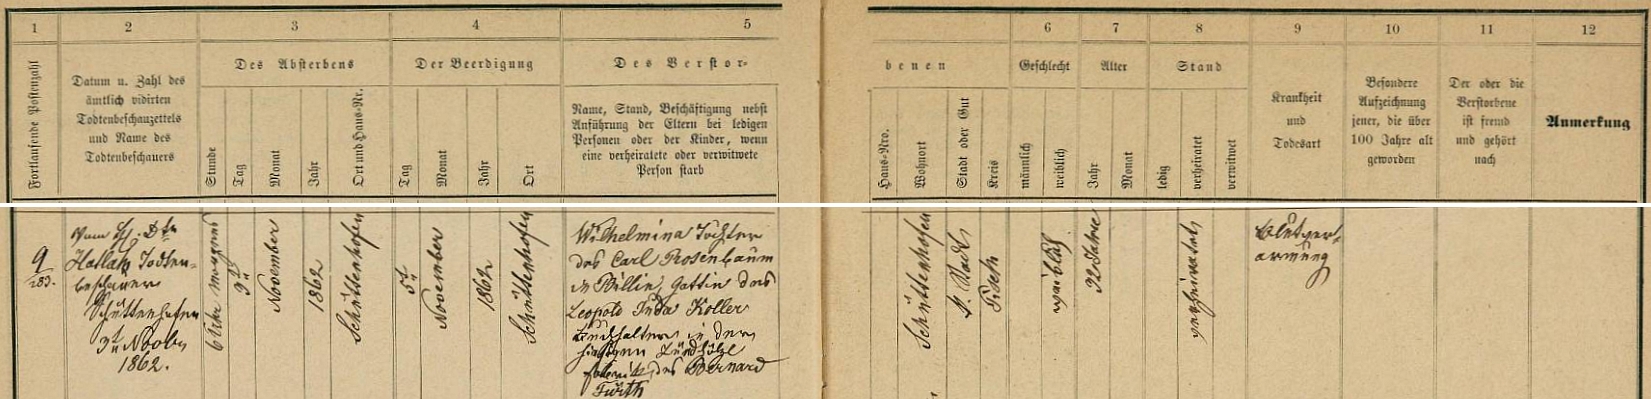 1
2
3
4
5
6
7
8
9
10
11
12
Fortlaufende Postenzahl
Datum u. Zahl des
ämtlich vidirten
Todtenbeschauzettels
und Name des
Todtenbeschauers
Des Absterbens
Stunde
Tag
Monat
Jahr
Ort und Haus-Nr.
Der Beerdigung
Tag
Monat
Jahr
Ort
Des Verstor-
Name, Stand, Beschäftigung nebst
Anführung der Eltern bei ledigen
Personen oder der Kinder, wenn
eine verheiratete oder verwitwete
Person starb
benen
Haus-Nro.
Wohnort
Stadt oder Gut
Kreis
Geschlecht
männlich
weiblich
Alter
Jahr
Monat
Stand
ledig
verheiratet
verwitwet
Krankheit
und
Todesart
Besondere
Aufzeichnung
jener, die über
100 Jahre alt
geworden
Der oder die
Verstorbene
ist fremd
und gehört
nach
Anmerkung
9
Vom H. Dtr
Todten-
beschauer
Schüttenhofen
3t Novbr
1862.
6 Uhr morgens
3t
November
1862
Schüttenhofen
5t
November
1862
Schüttenhofen
Wilhelmina Tochter
des Carl Rosenbaum
in Billin, Gattin des
Leopold Juda Koller
Buchhalter in der
hiesigen Zündhölzl
fabrik des Bernard
Fürth
Schüttenhofen
k. Stadt
Pisek
weiblich
32 Jahre
verheiratet
Blutver-
armung